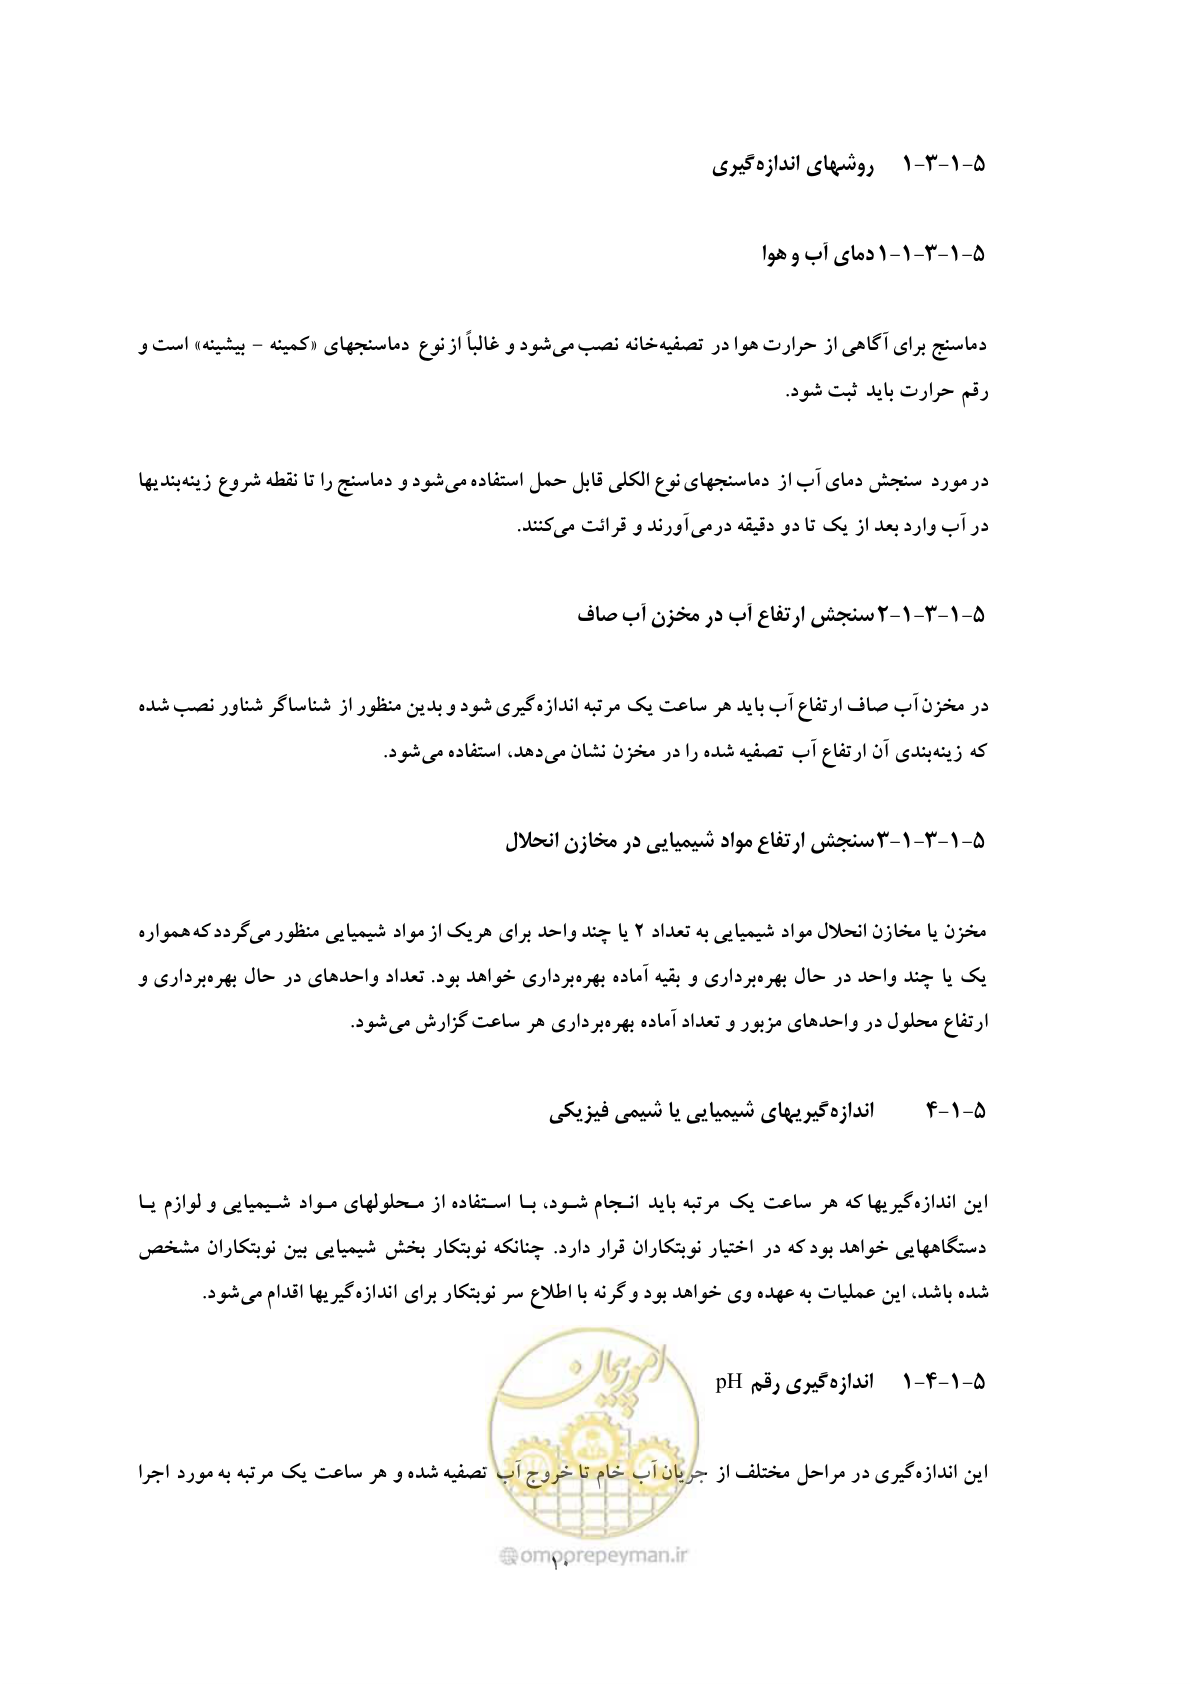 ۵-۱-۳-۱ روشهای اندازه‌گیری
۵-۱-۳-۱-۱ دمای آب و هوا
دماسنج برای آگاهی از حرارت هوا در تصفیه‌خانه نصب می‌شود و غالباً از نوع دماسنجهای «کمینه – بیشینه» است و
رقم حرارت باید ثبت شود.
در مورد سنجش دمای آب از دماسنجهای نوع الکلی قابل حمل استفاده می‌شود و دماسنج را تا نقطه شروع زینه‌بندیها
در آب وارد بعد از یک تا دو دقیقه درمی‌آورند و قرائت می‌کنند.
۵-۱-۳-۱-۲ سنجش ارتفاع آب در مخزن آب صاف
در مخزن آب صاف ارتفاع آب باید هر ساعت یک مرتبه اندازه‌گیری شود و بدین منظور از شناساگر شناور نصب شده
که زینه‌بندی آن ارتفاع آب تصفیه شده را در مخزن نشان می‌دهد، استفاده می‌شود.
۵-۱-۳-۱-۳ سنجش ارتفاع مواد شیمیایی در مخازن انحلال
مخزن یا مخازن انحلال مواد شیمیایی به تعداد ۲ یا چند واحد برای هریک از مواد شیمیایی منظور می‌گردد که همواره
یک یا چند واحد در حال بهره‌برداری و بقیه آماده بهره‌برداری خواهد بود. تعداد واحدهای در حال بهره‌برداری و
ارتفاع محلول در واحدهای مزبور و تعداد آماده بهره‌برداری هر ساعت گزارش می‌شود.
۵-۱-۴ اندازه‌گیریهای شیمیایی یا شیمی فیزیکی
این اندازه‌گیریها که هر ساعت یک مرتبه باید انـجام شـود، بـا اسـتفاده از مـحلولهای مـواد شـیمیایی و لوازم یـا
دستگاههایی خواهد بود که در اختیار نوبتکاران قرار دارد. چنانکه نوبتکار بخش شیمیایی بین نوبتکاران مشخص
شده باشد، این عملیات به عهده وی خواهد بود وگرنه با اطلاع سر نوبتکار برای اندازه‌گیریها اقدام می‌شود.
امور پیمان
۵-۱-۴-۱ اندازه‌گیری رقم pH
این اندازه‌گیری در مراحل مختلف از جریان آب خام تا خروج آب تصفیه شده و هر ساعت یک مرتبه به مورد اجرا
omoorepeyman.ir
۱۰